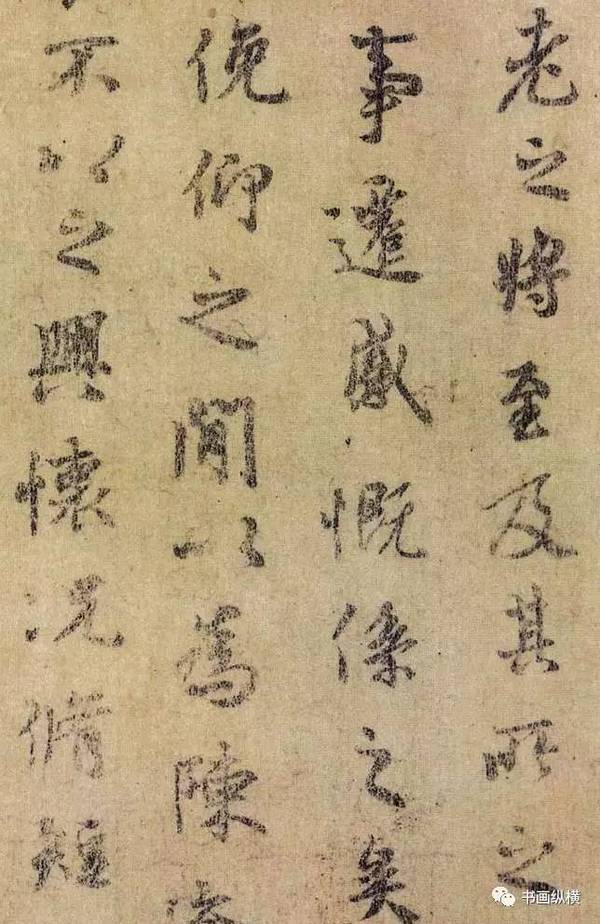 老之將至及其所之
事遷感慨係之矣
俛仰之閒以為陳
不以之興懷況脩短
书画纵横